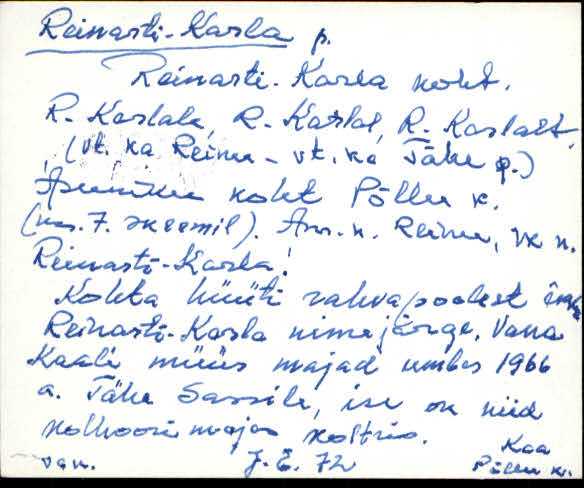 Reinasti-Karla p.
Reinasti-Karla koht.
R.-Karlale, R.-Karlal, R.-Karlalt
(vt. ka Reinu - vt. ka Tähe p.)
Asuniku koht Põllu k.
(nr. 7. skeemil). Am. n. Reinu, vk n.
Reinasti-Karla!
Kohta hüüti rahva poolest
Reinasti-Karla nime järge. Vana
Kaali müüs majad umbes 1966
a. Tähe Sassile, ise on nüid
kolhoosi majas
van. J. E. 72 Kaa
Põllu k.